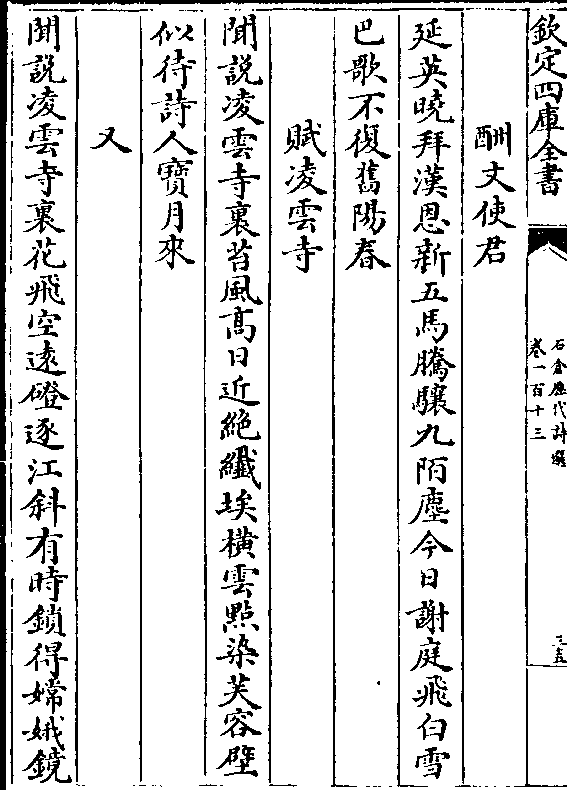 欽定四庫全書
石倉歷代詩選
卷一百十三
三五
酬文使君
延英曉拜漢恩新五馬騰驤九陌塵今日謝庭飛白雪
巴歌不復舊陽春
賦凌雲寺
聞說凌雲寺裏苔風髙日近絶纖埃橫雲㸃染芙容壁
似待詩人寳月來
又
聞說凌雲寺裏花飛空遶磴逐江斜有時鎖得嫦娥鏡